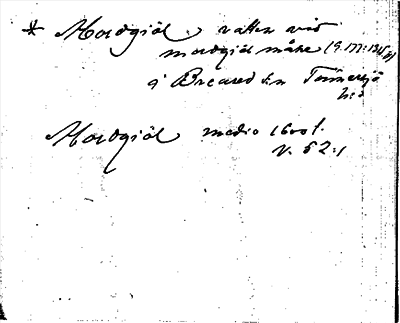 * Mordgiöl. vatten vid
mordgiöl måse (G. 177:1315 b)
i Breared sn Tönnersjö
h:d
Mordgiöl medio 1600 t.
v. 52:1